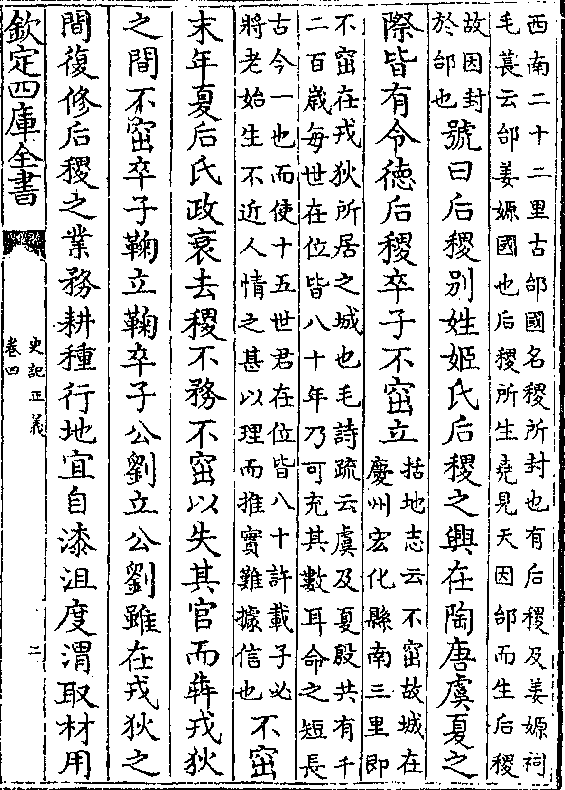 西南二十二里古邰國名稷所封也有后稷及姜嫄祠
毛萇云邰姜嫄國也后稷所生堯見天因邰而生后稷
故因封
於邰也
號曰后稷別姓姬氏后稷之興在陶唐虞夏之
際皆有令德后稷卒子不窋立
括地志云不窋故城在
慶州宏化縣南三里即
不窋在戎狄所居之城也毛詩疏云虞及夏殷共有千
二百歳每世在位皆八十年乃可充其數耳命之短長
古今一也而使十五世君在位皆八十許載子必
將老始生不近人情之甚以理而推實難據信也
不窋
末年夏后氏政衰去稷不務不窋以失其官而犇戎狄
之間不窋卒子鞠立鞠卒子公劉立公劉雖在戎狄之
間復修后稷之業務耕種行地宜自漆沮度渭取材用
欽定四庫全書
史記正義
卷四
二